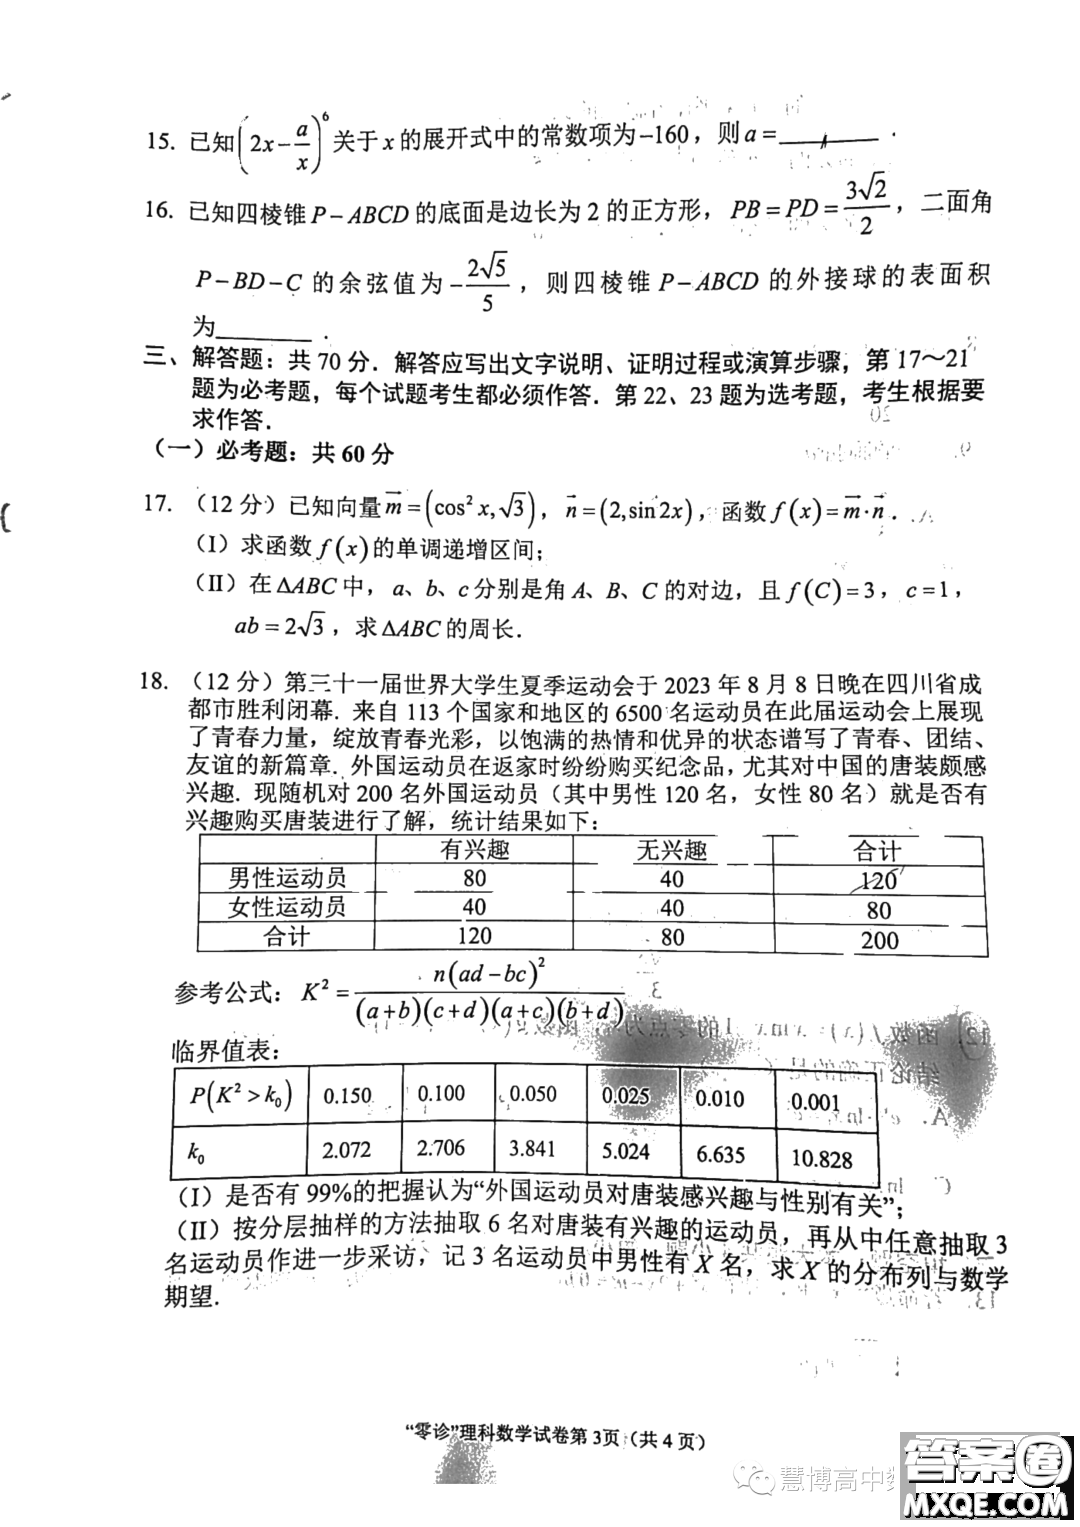 15. 已知(2x-a/x)^6关于x的展开式中的常数项为-160，则a=________.
16. 已知四棱锥P-ABCD的底面是边长为2的正方形，PB=PD=3√2/2，二面角
P-BD-C的余弦值为-2√5/5，则四棱锥P-ABCD的外接球的表面积
为________.
三、解答题：共70分．解答应写出文字说明、证明过程或演算步骤，第17～21
题为必考题，每个试题考生都必须作答．第22、23题为选考题，考生根据要
求作答．
（一）必考题：共60分
17. （12分）已知向量m⃗=(cos²x,√3)，n⃗=(2,sin2x)，函数f(x)=m⃗·n⃗．
（I）求函数f(x)的单调递增区间；
（II）在△ABC中，a、b、c分别是角A、B、C的对边，且f(C)=3，c=1，
ab=2√3，求△ABC的周长．
18. （12分）第三十一届世界大学生夏季运动会于2023年8月8日晚在四川省成
都市胜利闭幕．来自113个国家和地区的6500名运动员在此届运动会上展现
了青春力量，绽放青春光彩，以饱满的热情和优异的状态谱写了青春、团结、
友谊的新篇章．外国运动员在返家时纷纷购买纪念品，尤其对中国的唐装颇感
兴趣．现随机对200名外国运动员（其中男性120名，女性80名）就是否有
兴趣购买唐装进行了解，统计结果如下：
有兴趣 无兴趣 合计
男性运动员 80 40 120
女性运动员 40 40 80
合计 120 80 200
参考公式：K²=n(ad-bc)²/((a+b)(c+d)(a+c)(b+d))
临界值表：
P(K²>k₀) 0.150 0.100 0.050 0.025 0.010 0.001
k₀ 2.072 2.706 3.841 5.024 6.635 10.828
（I）是否有99%的把握认为“外国运动员对唐装感兴趣与性别有关”；
（II）按分层抽样的方法抽取6名对唐装有兴趣的运动员，再从中任意抽取3
名运动员作进一步采访，记3名运动员中男性有X名，求X的分布列与数学
期望．
“零诊”理科数学试卷第3页（共4页）
慧博高中数
答案圈
MXQE.COM